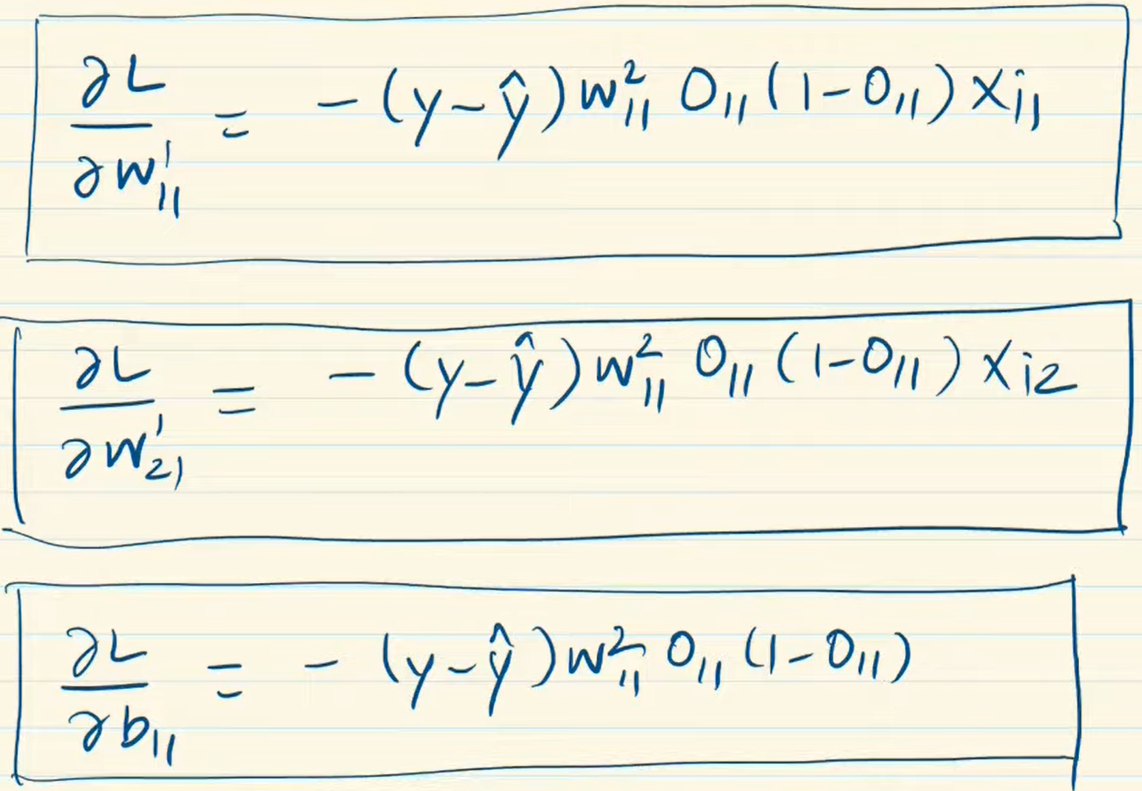 ∂L/∂w¹₁₁ = -(y-ŷ)w²₁₁ O₁₁(1-O₁₁)Xi₁
∂L/∂w¹₂₁ = -(y-ŷ)w²₁₁ O₁₁(1-O₁₁)Xi₂
∂L/∂b₁₁ = -(y-ŷ)w²₁₁ O₁₁(1-O₁₁)